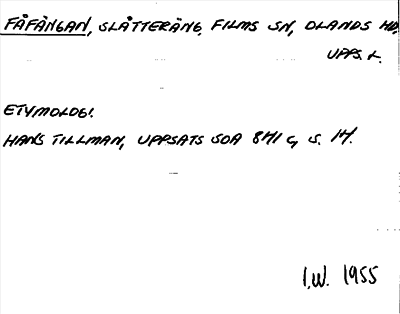 FÅFÄNGAN, SLÅTTERÄNG, FILMS SN, OLANDS HD,
UPPS. L.
ETYMOLOGI.
HANS TILLMAN, UPPSATS SOA 8H1 C, S. 14.
I.W. 1955